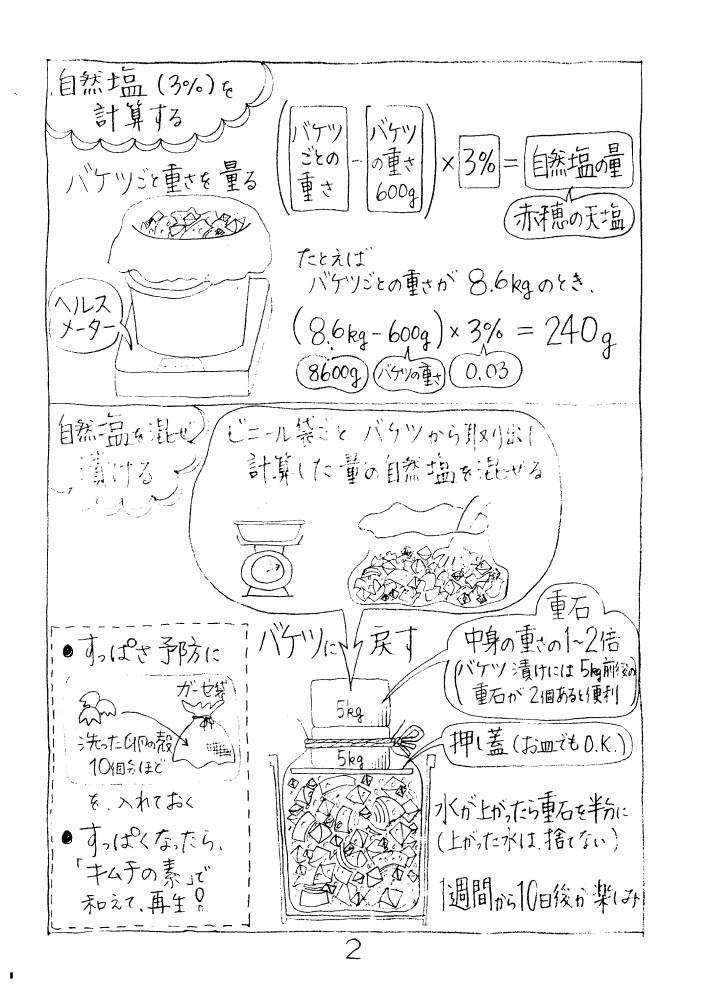 自然塩(3%)を
計算する
バケツごと重さを量る
ヘルス
メーター
(バケツごとの重さ - バケツの重さ600g) × 3% = 自然塩の量
赤穂の天塩
たとえば
バケツごとの重さが 8.6kgのとき、
(8.6kg - 600g) × 3% = 240g
8600g
バケツの重さ
0.03
自然塩を混ぜ
漬ける
ビニール袋ごと バケツから取り出し
計算した量の自然塩を混ぜる
バケツに戻す
重石
中身の重さの1~2倍
バケツ漬けには5kg前後の
重石が2個あると便利
5kg
5kg
押し蓋(お皿でもO.K.)
水が上がったら重石を半分に
(上がった水は、捨てない)
1週間から10日後が楽しみ
● すっぱさ予防に
ガーゼ袋
洗った卵の殻
10個分ほど
を、入れておく
● すっぱくなったら、
「キムチの素」で
和えて、再生!
2